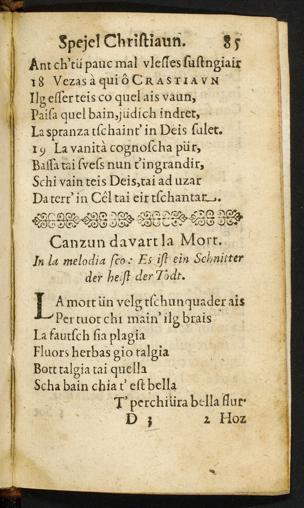 Spejel Christiaun. 85
Ant ch'tü pauc mal vlesses sustngiair
18 Vezas à qui ô CRASTIAVN
Ilg esser teis co quel ais vaun,
Paisa quel bain, jüdich indret,
La spranza tschaint' in Deis sulet.
19 La vanità cognoscha pür,
Bassa tai svess nun t'ingrandir,
Schi vain teis Deis, tai ad uzar
Da terr' in Cêl tai eir tschantar.
Canzun davart la Mort.
In la melodia sco: Es ist ein Schnitter
der heist der Todt.
LA mort ün velg tschunquader ais
Per tuot chi main' ilg brais
La fautsch sia plagia
Fluors herbas gio talgia
Bott talgia tai quella
Scha bain chia t' est bella
T' perchiüra bella flur
D 3 2 Hoz